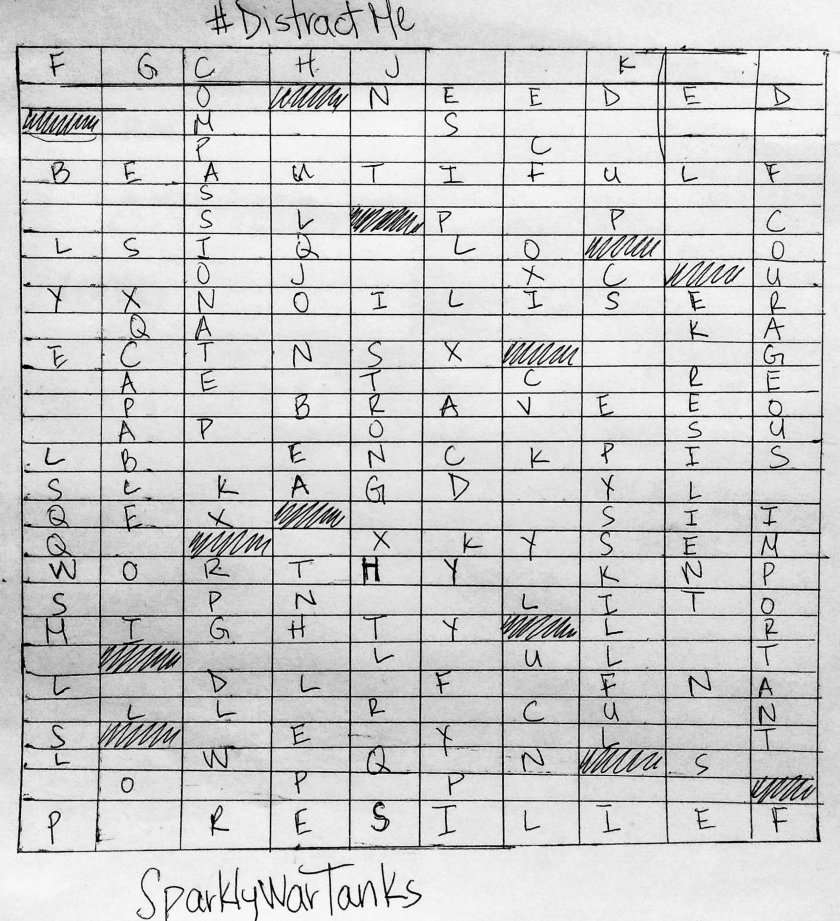 #DistractMe
F G C H J K
O N E E D E D
M S
P C
B E A U T I F U L F
S
S L P P C
L S I Q L O O
O J X C U
Y X N O I L I S E R
Q A K A
E C T N S X G
A E T C R E
P B R A V E E O
A P O S U
L B E N C K P I S
S L K A G D Y L
Q E X S I I
Q X K Y S E M
W O R T H Y K N P
S P N L I T O
M I G H T Y L R
L U L T
L D L F F N A
L L R C U N
S E Y L T
L W Q N S
O P P
P R E S I L I E F
SparklyWarTanks